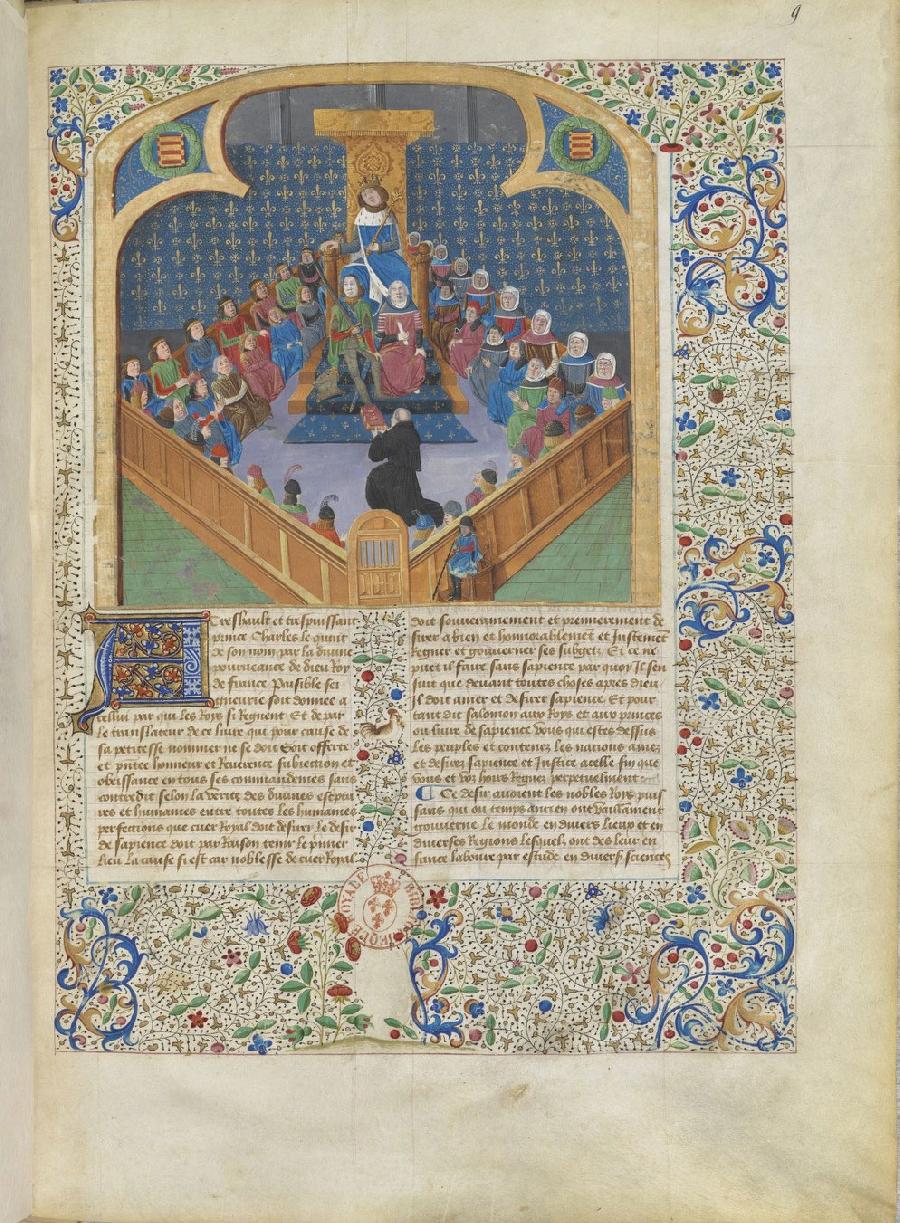 9
Treshault et trespuissant
prince Charles le quint
de son nom par la divine
pourveance de dieu Roy
de france Paisible sei
gneurie soit donnee a
cellui par qui les Roys si Regnent Et de par
le translateur de ce livre qui pour cause de
sa petitesse nommer ne se doit Soit offerte
et prestee honneur et Reverence subiection et
obeissance en tous ses commandemens sans
contredit selon la verite des divines escriptu
res et humaines entre toutes les humaines
perfections que cuer Royal doit desirer le desir
de sapience doit par Raison tenir le premier
lieu La cause si est car noblesse de cuer Royal
doit souverainement et premierement de
sirer a bien et honnorablement et Justement
Regner et gouverner ses subgetz Et ce ne
puet il faire sans sapience par quoy Il sen
suit que devant toutes choses apres dieu
Il doit amer et desirer sapience Et pour
tant dit salomon aux Roys et aux princes
ou livre de sapience Vous qui estes dessus
les peuples et contenez les nacions amez
et desirez sapience et Justice a celle fin que
vous et voz hoirs Regnez perpetuelment
Ce desir avoient les nobles Roys puis
sans qui ou temps ancien ont vaillamment
gouverne le monde en divers lieux et en
diverses Regions lesquelz ont des leur en
fance laboure par estude en diverses sciences
BIBLIOTHECAE REGIAE